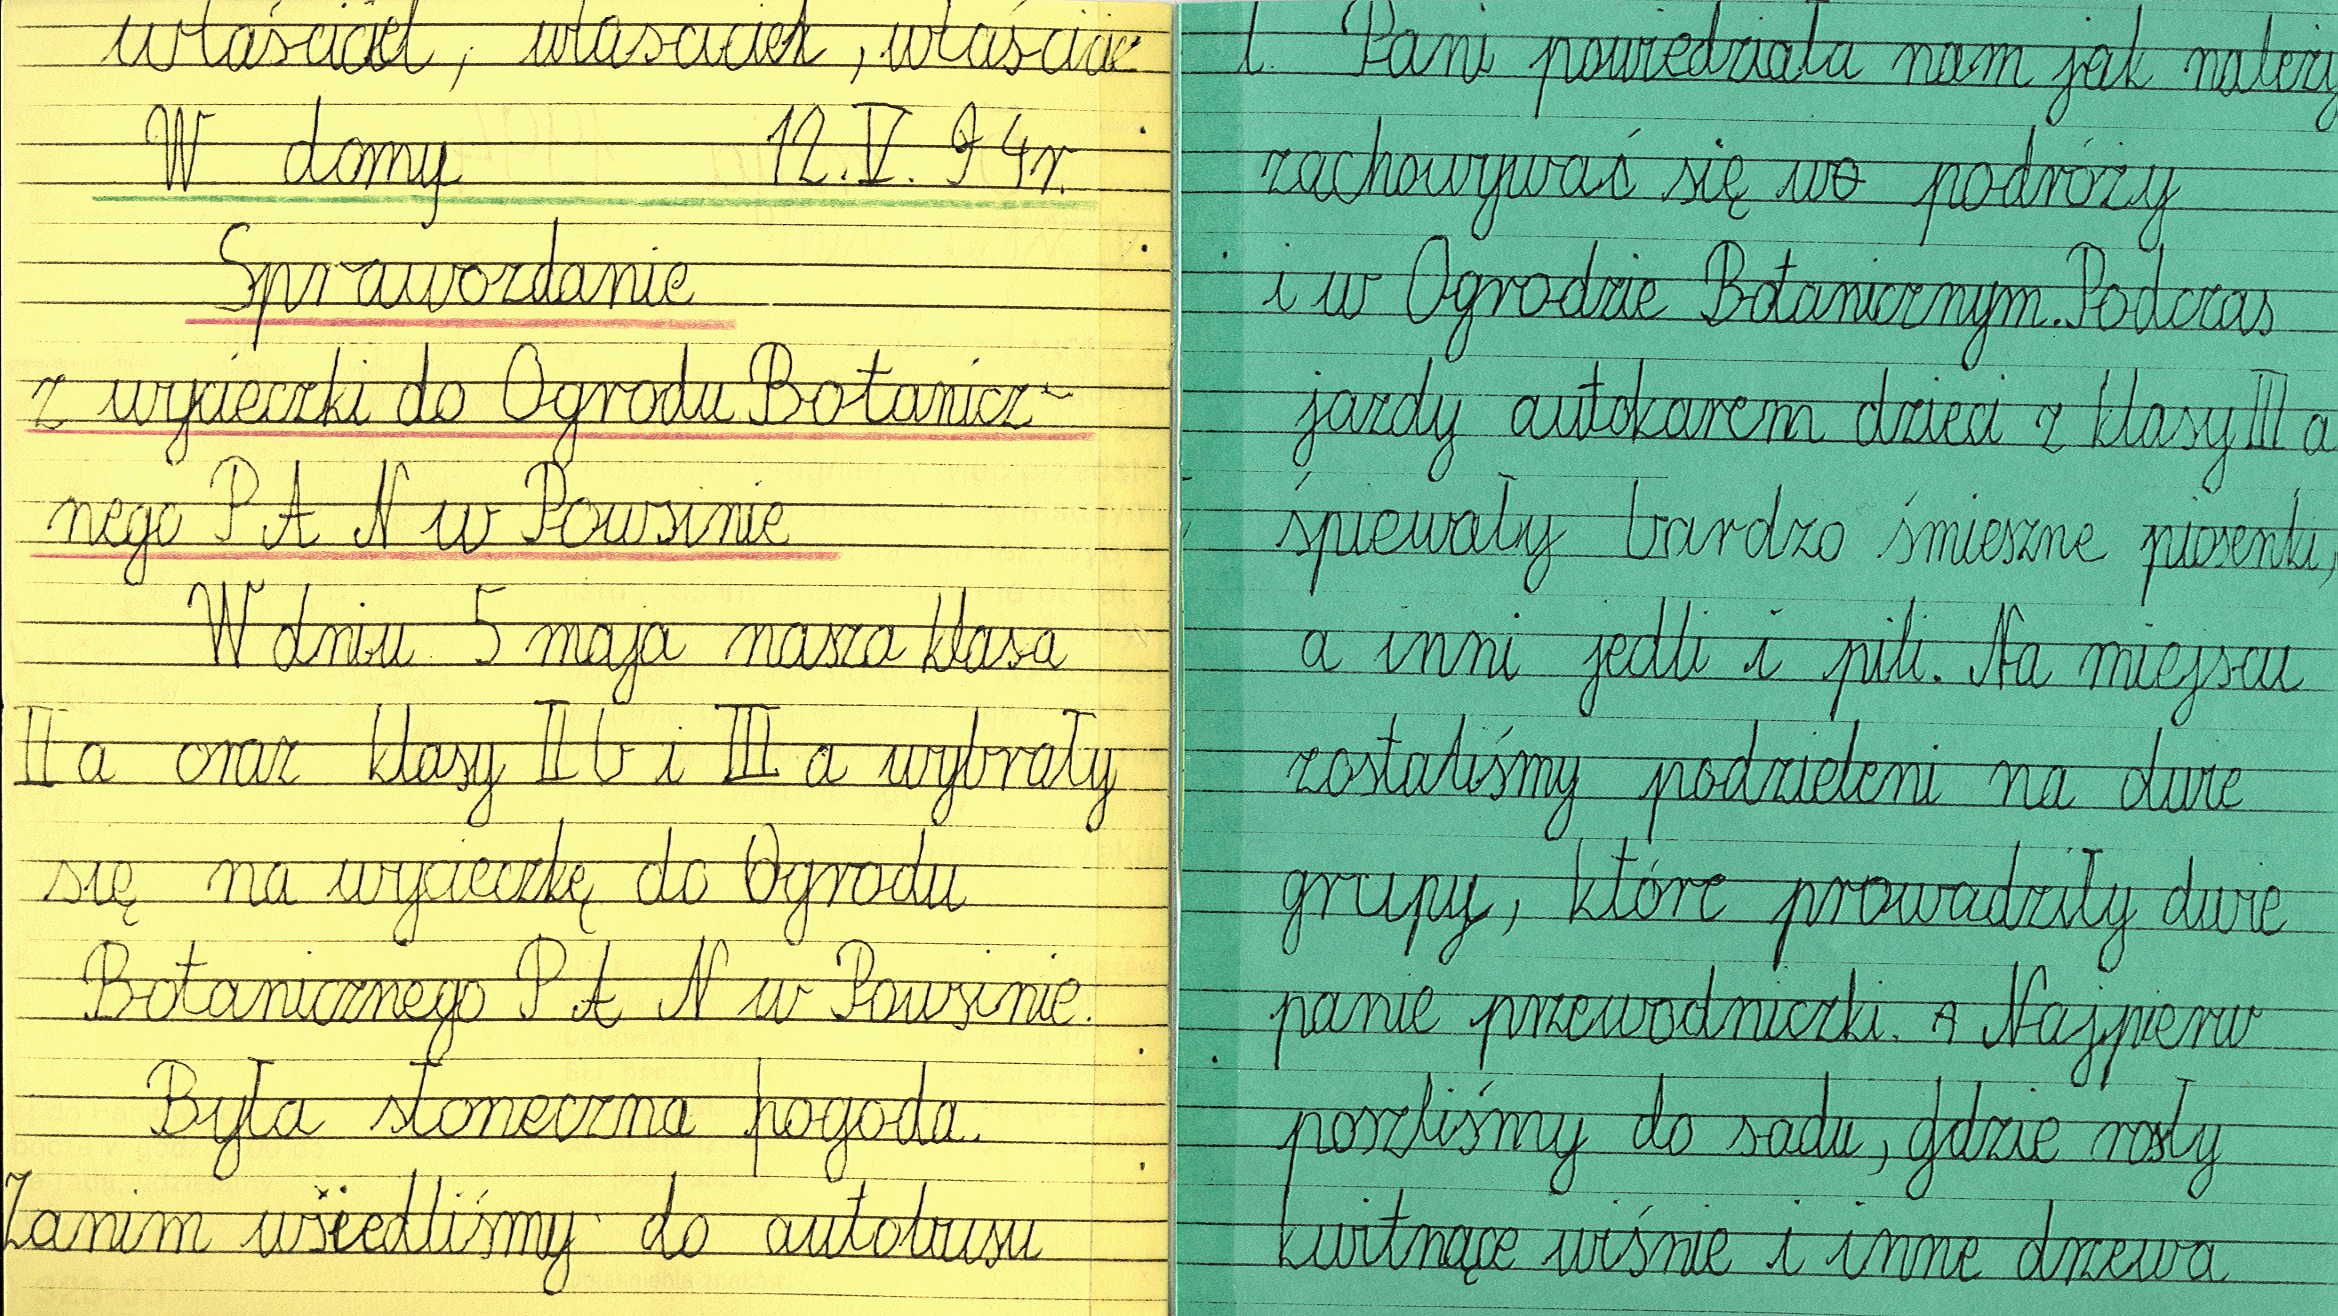 właściciel, właściciel, właścicie
W domy 12.V.94r.
Sprawozdanie
z wycieczki do Ogrodu Botanicz-
nego P A N w Powsinie
W dniu 5 maja nasza klasa
II a oraz klasy II b i III a wybrały
się na wycieczkę do Ogrodu
Botanicznego P A N w Powsinie.
Była słoneczna pogoda.
Zanim wsiedliśmy do autobusu
l. Pani powiedziała nam jak należy
zachowywać się w podróży
i w Ogrodzie Botanicznym. Podczas
jazdy autokarem dzieci z klasy III a
śpiewały bardzo śmieszne piosenki,
a inni jedli i pili. Na miejscu
zostaliśmy podzieleni na dwie
grupy, które prowadziły dwie
panie przewodniczki. A Najpierw
poszliśmy do sadu, gdzie rosły
kwitnące wiśnie i inne drzewa